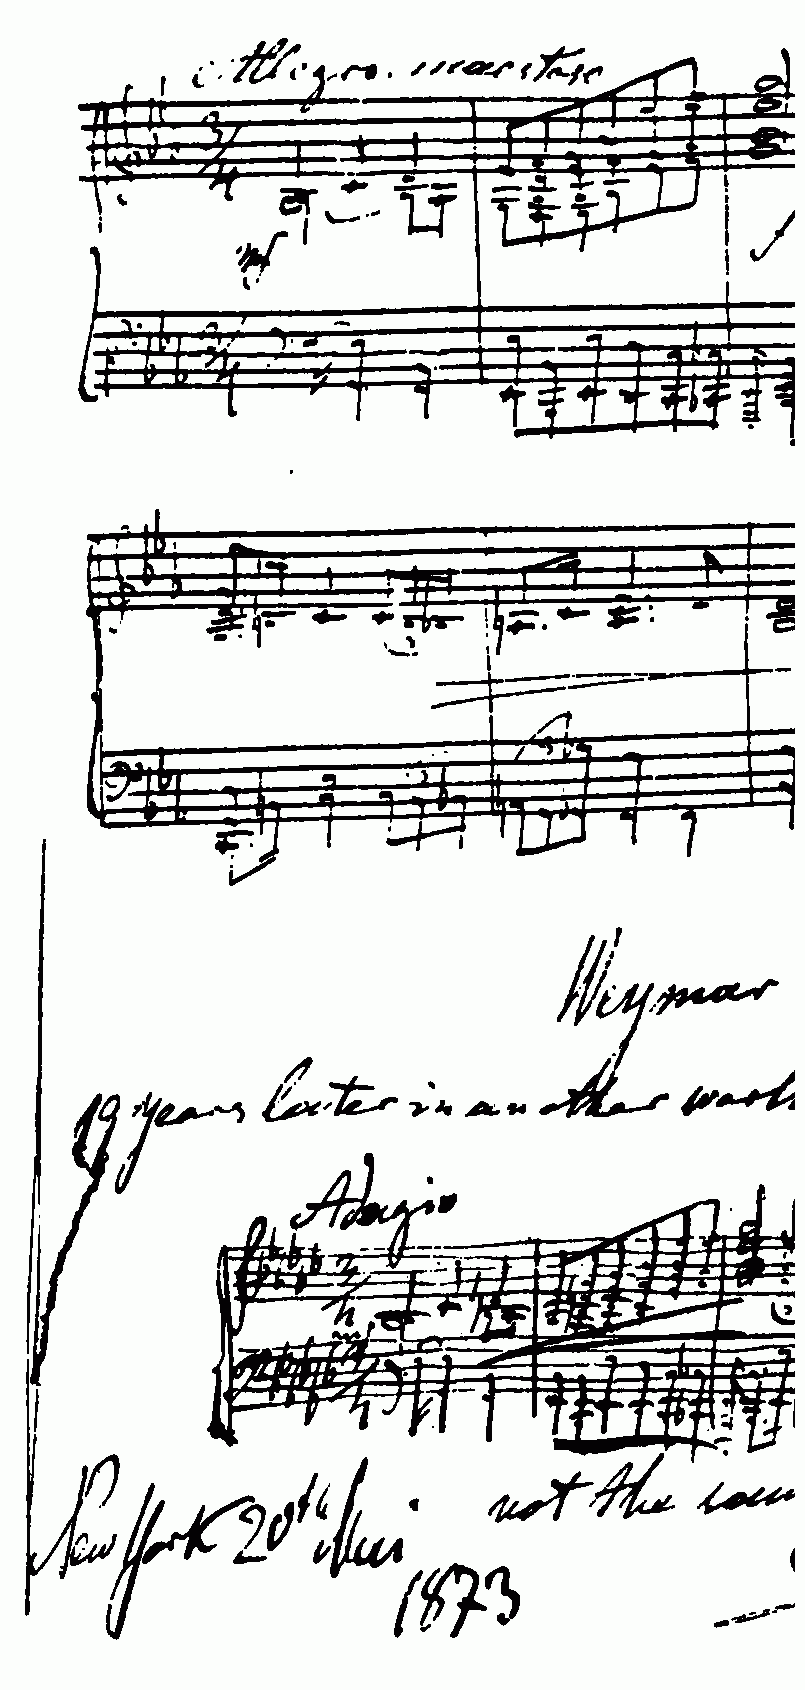 Allegro. maestoso
mf
Weymar
19 years later in another work
Adagio
New York 20th Mai not the same
1873